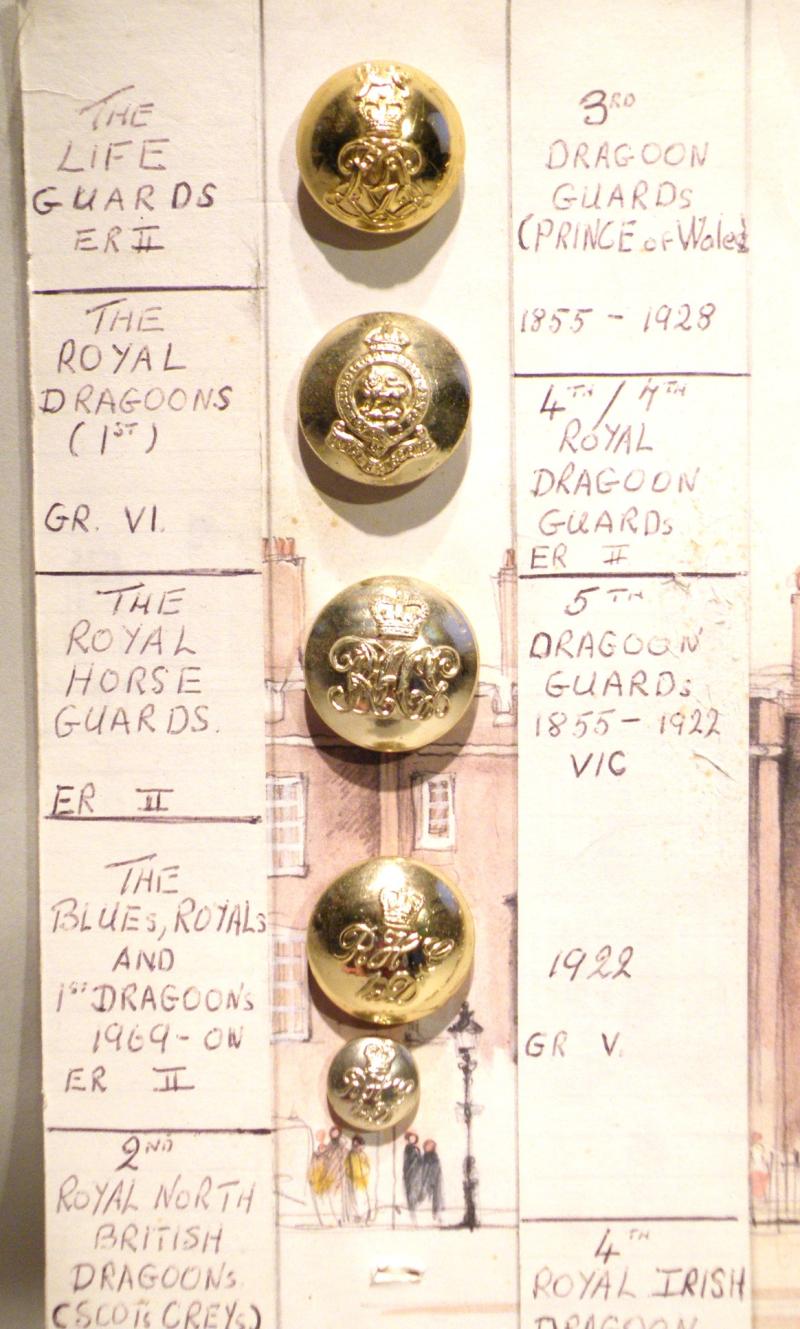 THE
LIFE
GUARDS
ER II
THE
ROYAL
DRAGOONS
(1ST)
GR. VI.
THE
ROYAL
HORSE
GUARDS.
ER II
THE
BLUEs, ROYALs
AND
1ST DRAGOONs
1969 - ON
ER II
2ND
ROYAL NORTH
BRITISH
DRAGOONs
(SCOTs GREYs)
RHG
1stD
3RD
DRAGOON
GUARDs
(PRINCE of Wales
1855 - 1928
4TH / 7TH
ROYAL
DRAGOON
GUARDs
ER II
5TH
DRAGOON
GUARDs
1855 - 1922
VIC
1922
GR V.
4TH
ROYAL IRISH
DRAGOON